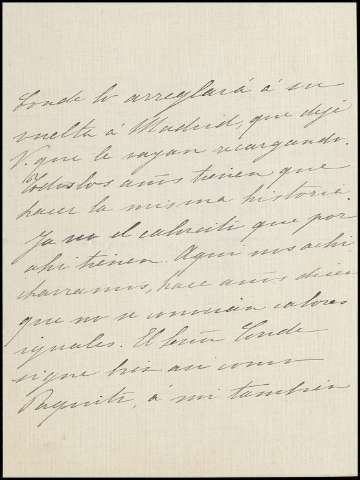 Conde lo arreglará á su
vuelta á Madrid, que dejé
V. que le vayan recargando.
Todos los años tienen que
hacer la misma historia.
Ya veo el calorcito que por
ahi tienen. Aqui nos achi
charramos, hace años dicen
que no se conocian calores
iguales. El Señor Conde
sigue bien asi como
Paquito, á mi tambien